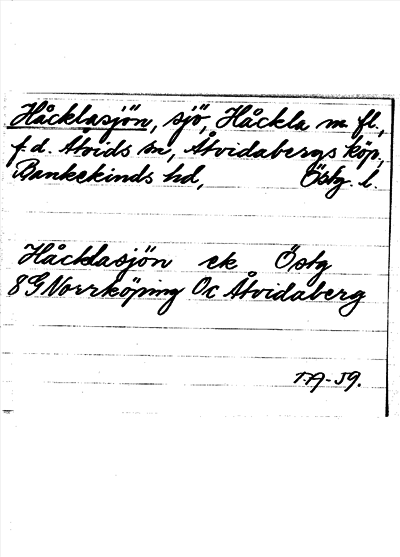 Håcklasjön, sjö, Håckla m. fl.,
f.d. Åtvids sn, Åtvidabergs köp,
Bankekinds hd, Östg. l.
Håcklasjön ek Östg
8G Norrköping Oc Åtvidaberg
-59.